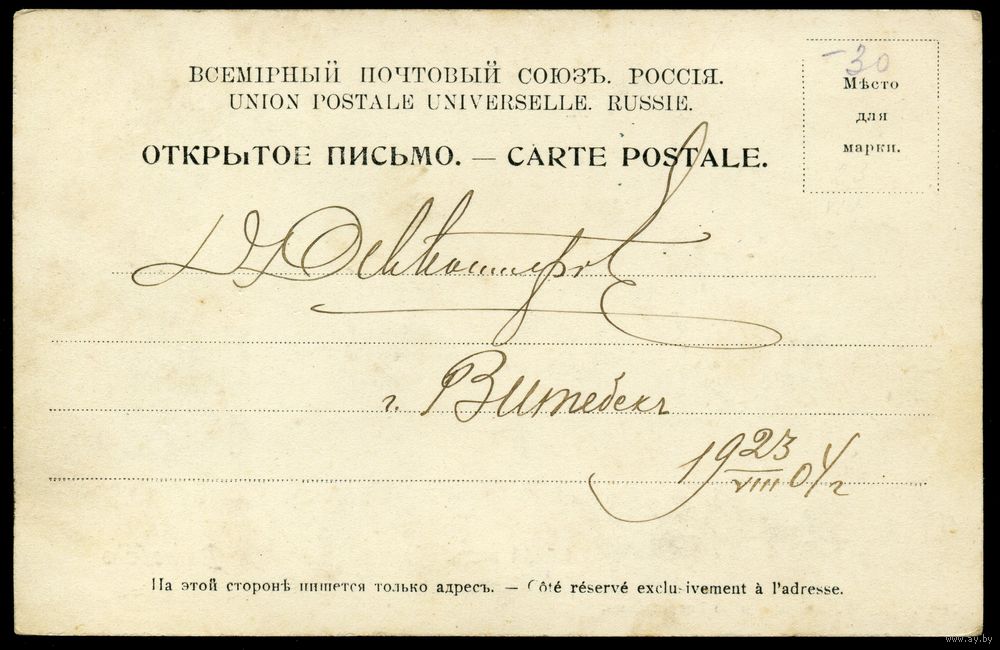 ВСЕМІРНЫЙ ПОЧТОВЫЙ СОЮЗЪ. РОССІЯ.
UNION POSTALE UNIVERSELLE. RUSSIE.
ОТКРЫТОЕ ПИСЬМО. — CARTE POSTALE.
-30
Мѣсто
для
марки.
г. Витебскъ
19 23/VIII 04 г
На этой сторонѣ пишется только адресъ. — Côté réservé exclusivement à l'adresse.
www.ay.by